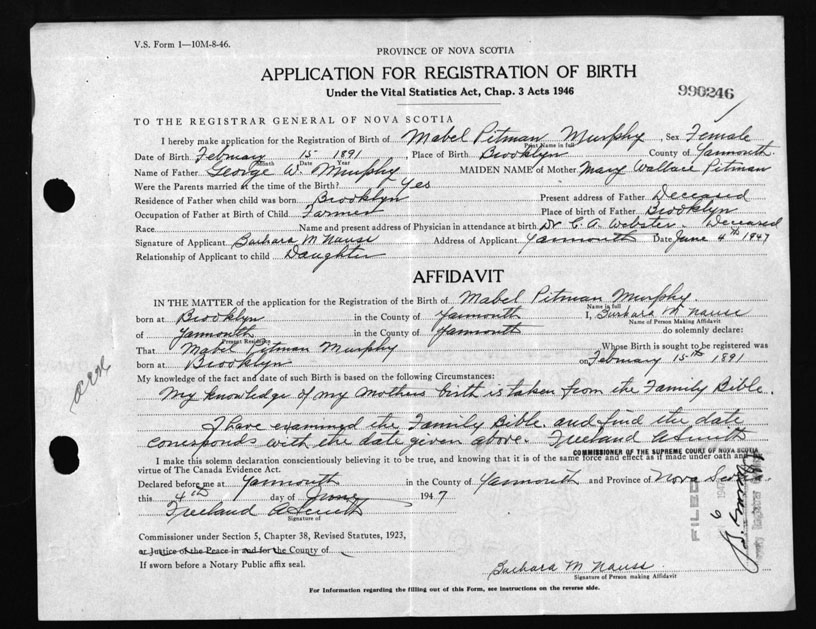 V.S. Form 1—10M-8-46.
PROVINCE OF NOVA SCOTIA
APPLICATION FOR REGISTRATION OF BIRTH
Under the Vital Statistics Act, Chap. 3 Acts 1946
990246
TO THE REGISTRAR GENERAL OF NOVA SCOTIA
I hereby make application for the Registration of Birth of Mabel Pitman Murphy, Sex Female
Print Name in full
Date of Birth February 15 1891, Place of Birth Brooklyn County of Yarmouth
Month Date Year
Name of Father George W. Murphy MAIDEN NAME of Mother Mary Wallace Pitman
Were the Parents married at the time of the Birth? Yes
Residence of Father when child was born Brooklyn Present address of Father Deceased
Occupation of Father at Birth of Child Farmer Place of birth of Father Brooklyn
Race Name and present address of Physician in attendance at birth Dr C. A. Webster. Deceased
Signature of Applicant Barbara M Nauss Address of Applicant Yarmouth Date June 4th 1947
Relationship of Applicant to child Daughter
AFFIDAVIT
IN THE MATTER of the application for the Registration of the Birth of Mabel Pitman Murphy.
Name in full
born at Brooklyn in the County of Yarmouth I, Barbara M Nauss
Name of Person Making Affidavit
of Yarmouth in the County of Yarmouth do solemnly declare:
Present Residence
That Mabel Pitman Murphy Whose Birth is sought to be registered was
born at Brooklyn on February 15th 1891
My knowledge of the fact and date of such Birth is based on the following Circumstances:
My knowledge of my mothers birth is taken from the Family Bible.
I have examined the Family Bible and find the date
corresponds with the date given above. Freeland A Smith
COMMISSIONER OF THE SUPREME COURT OF NOVA SCOTIA
I make this solemn declaration conscientiously believing it to be true, and knowing that it is of the same force and effect as if made under oath and
virtue of The Canada Evidence Act.
Declared before me at Yarmouth in the County of Yarmouth and Province of Nova Scotia.
this 4th day of June 1947
Freeland A Smith
Signature of
FILED
Commissioner under Section 5, Chapter 38, Revised Statutes, 1923,
or Justice of the Peace in and for the County of
If sworn before a Notary Public affix seal.
Barbara M Nauss
Signature of Person making Affidavit
For Information regarding the filling out of this Form, see instructions on the reverse side.